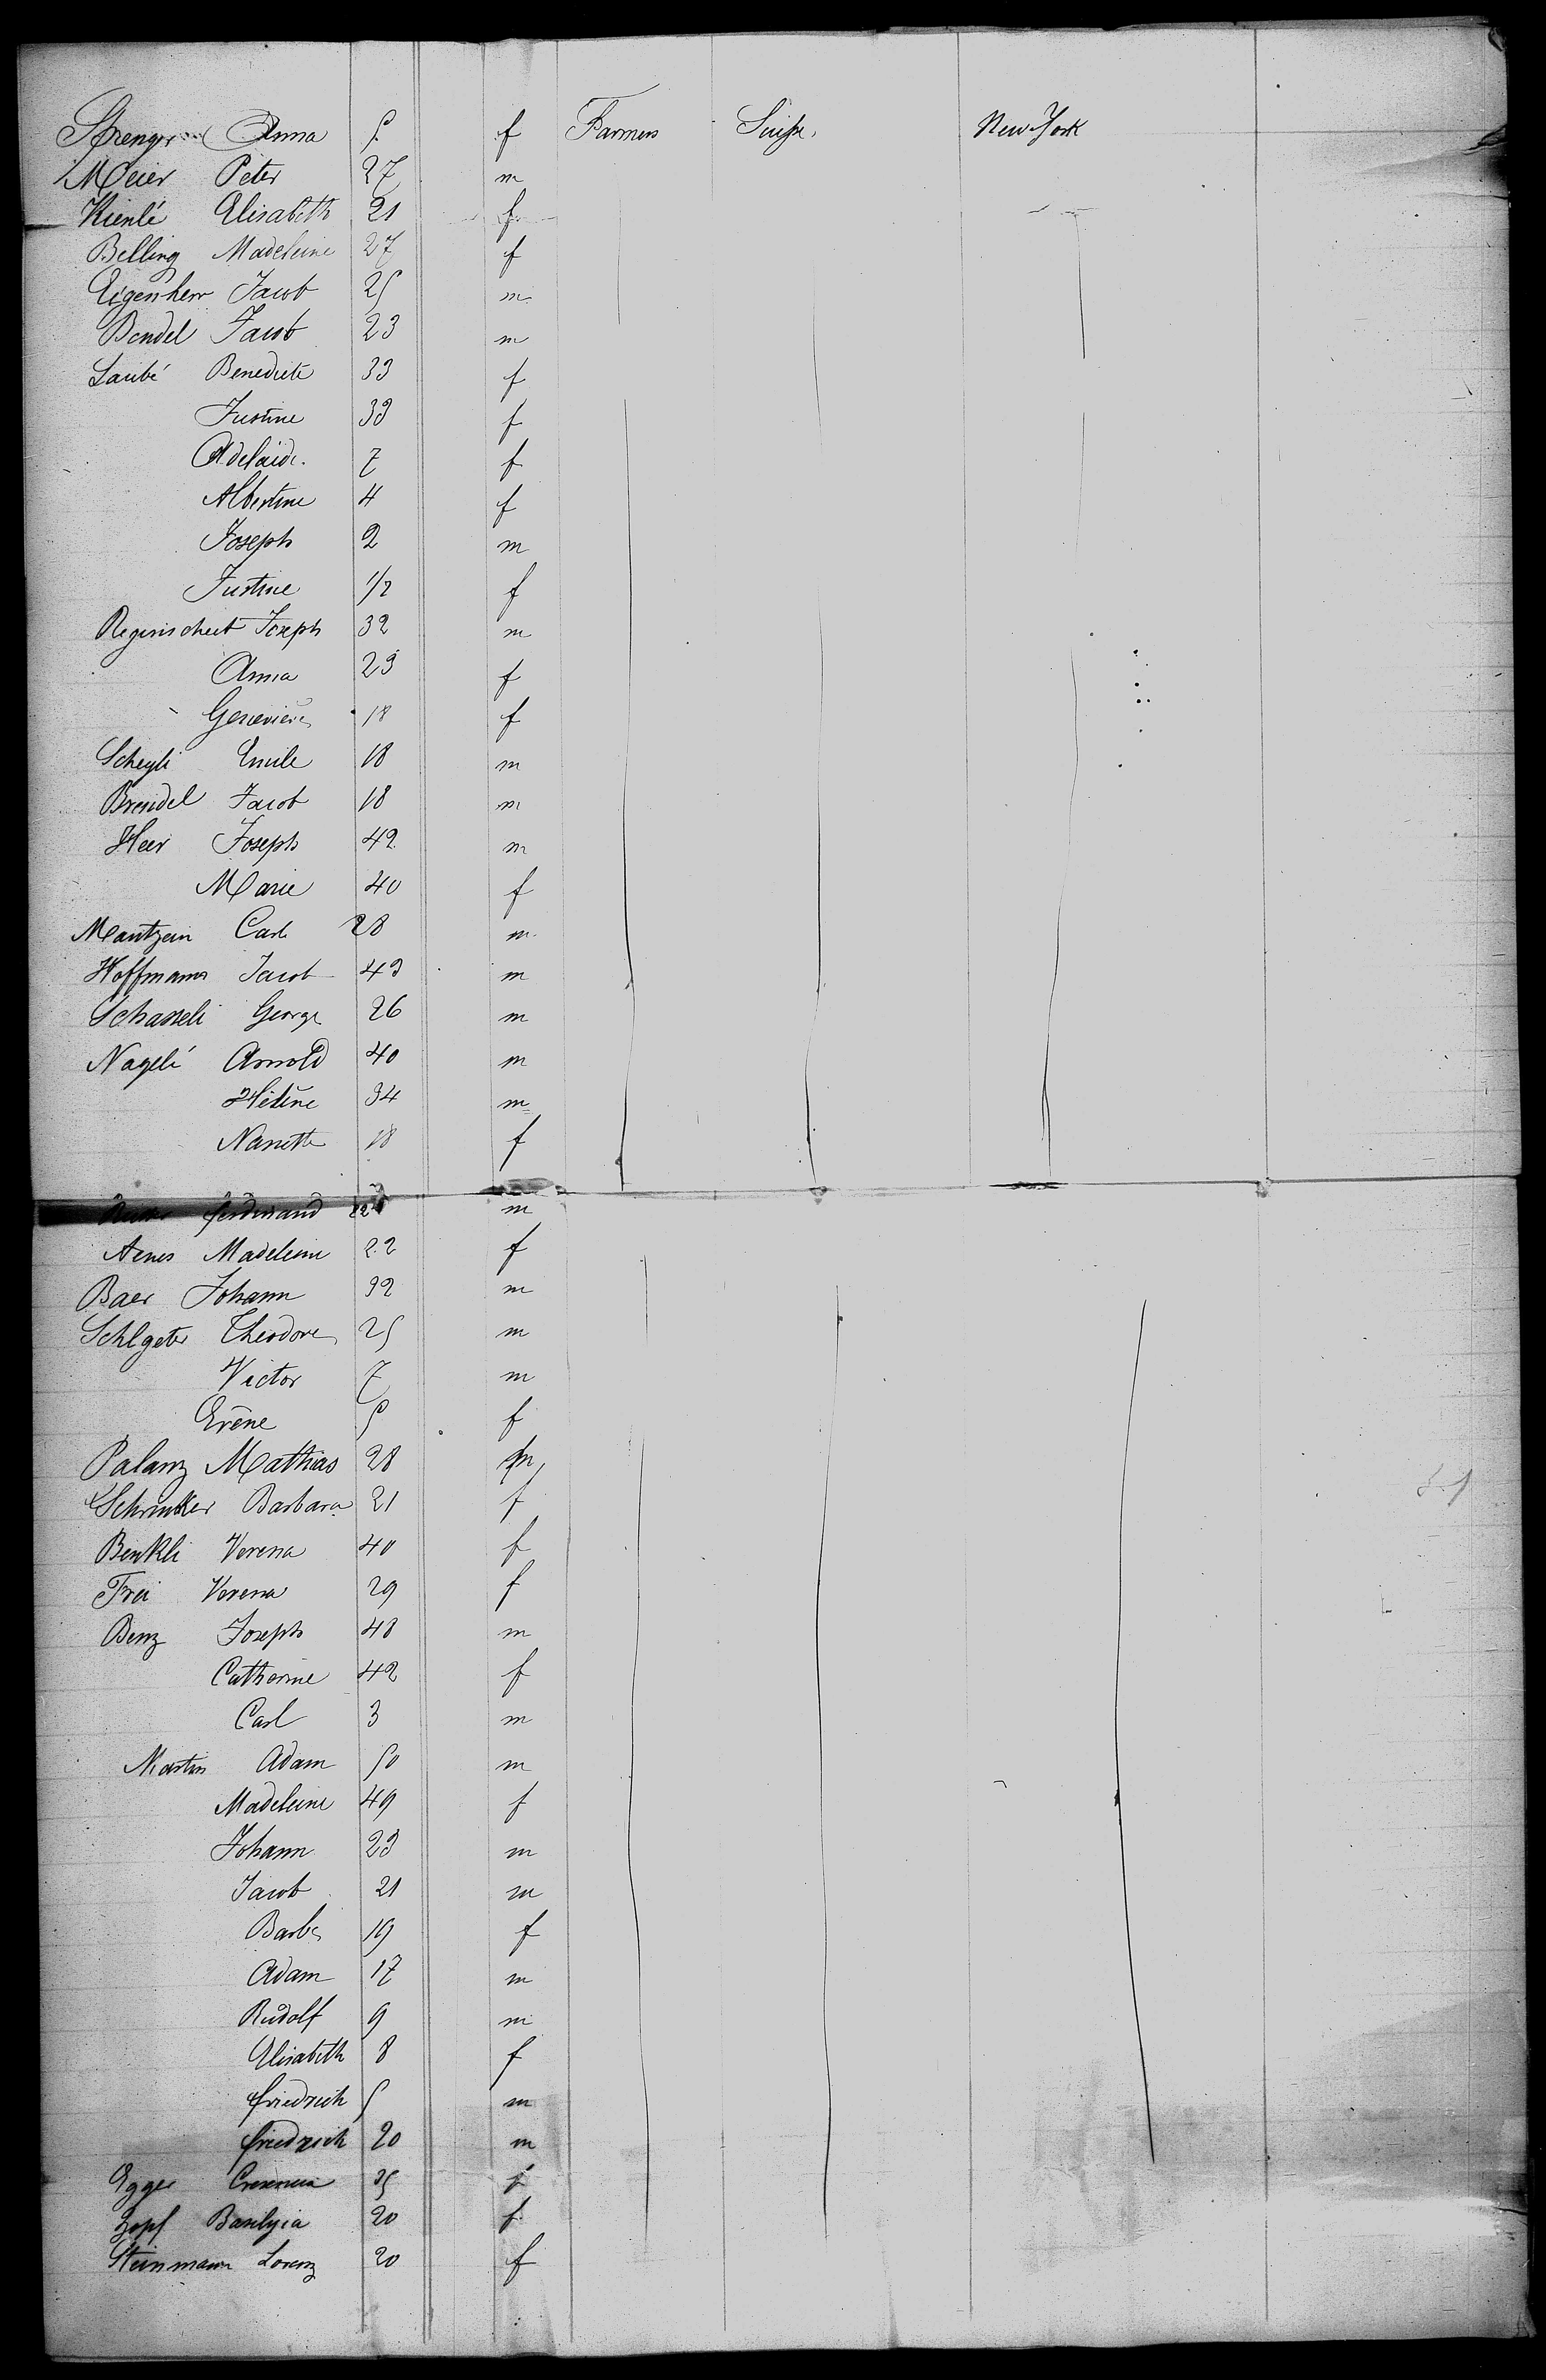 Sprenger Anna 5 f Farmers Suisse New York
Meier Peter 27 m
Kienlé Elisabeth 21 f
Belling Madeleine 27 f
Eigenherr Jacob 25 m
Bendel Jacob 23 m
Laubé Benedicte 33 f
Justine 33 f
Adelaide 7 f
Albertine 4 f
Joseph 2 m
Justine 1/2 f
Joseph 32 m
Anna 23 f
Genevieve 18 f
Scheyli Emile 18 m
Brendel Jacob 18 m
Heer Joseph 42 m
Marie 40 f
Mantzein Carl 28 m
Hoffmann Jacob 43 m
George 26 m
Nageli Arnold 40 m
Hélène 34 m
Nanette 18 f
ferdinand 22 m
Madeleine 22 f
Baer Johann 32 m
Schlgeter Theodore 25 m
Victor 7 m
Erêne 5 f
Palanz Mathias 28 m
Barbara 21 f
Benkli Verena 40 f
Frei Verena 29 f
Benz Joseph 48 m
Catherine 42 f
Carl 3 m
Martin Adam 50 m
Madeleine 49 f
Johann 23 m
Jacob 21 m
Barbe 19 f
Adam 17 m
Rudolf 9 m
Elisabeth 8 f
friedrich 5 m
friedrich 20 m
Egger 35 f
Zopf 20 f
Steinmann Lorenz 20 f